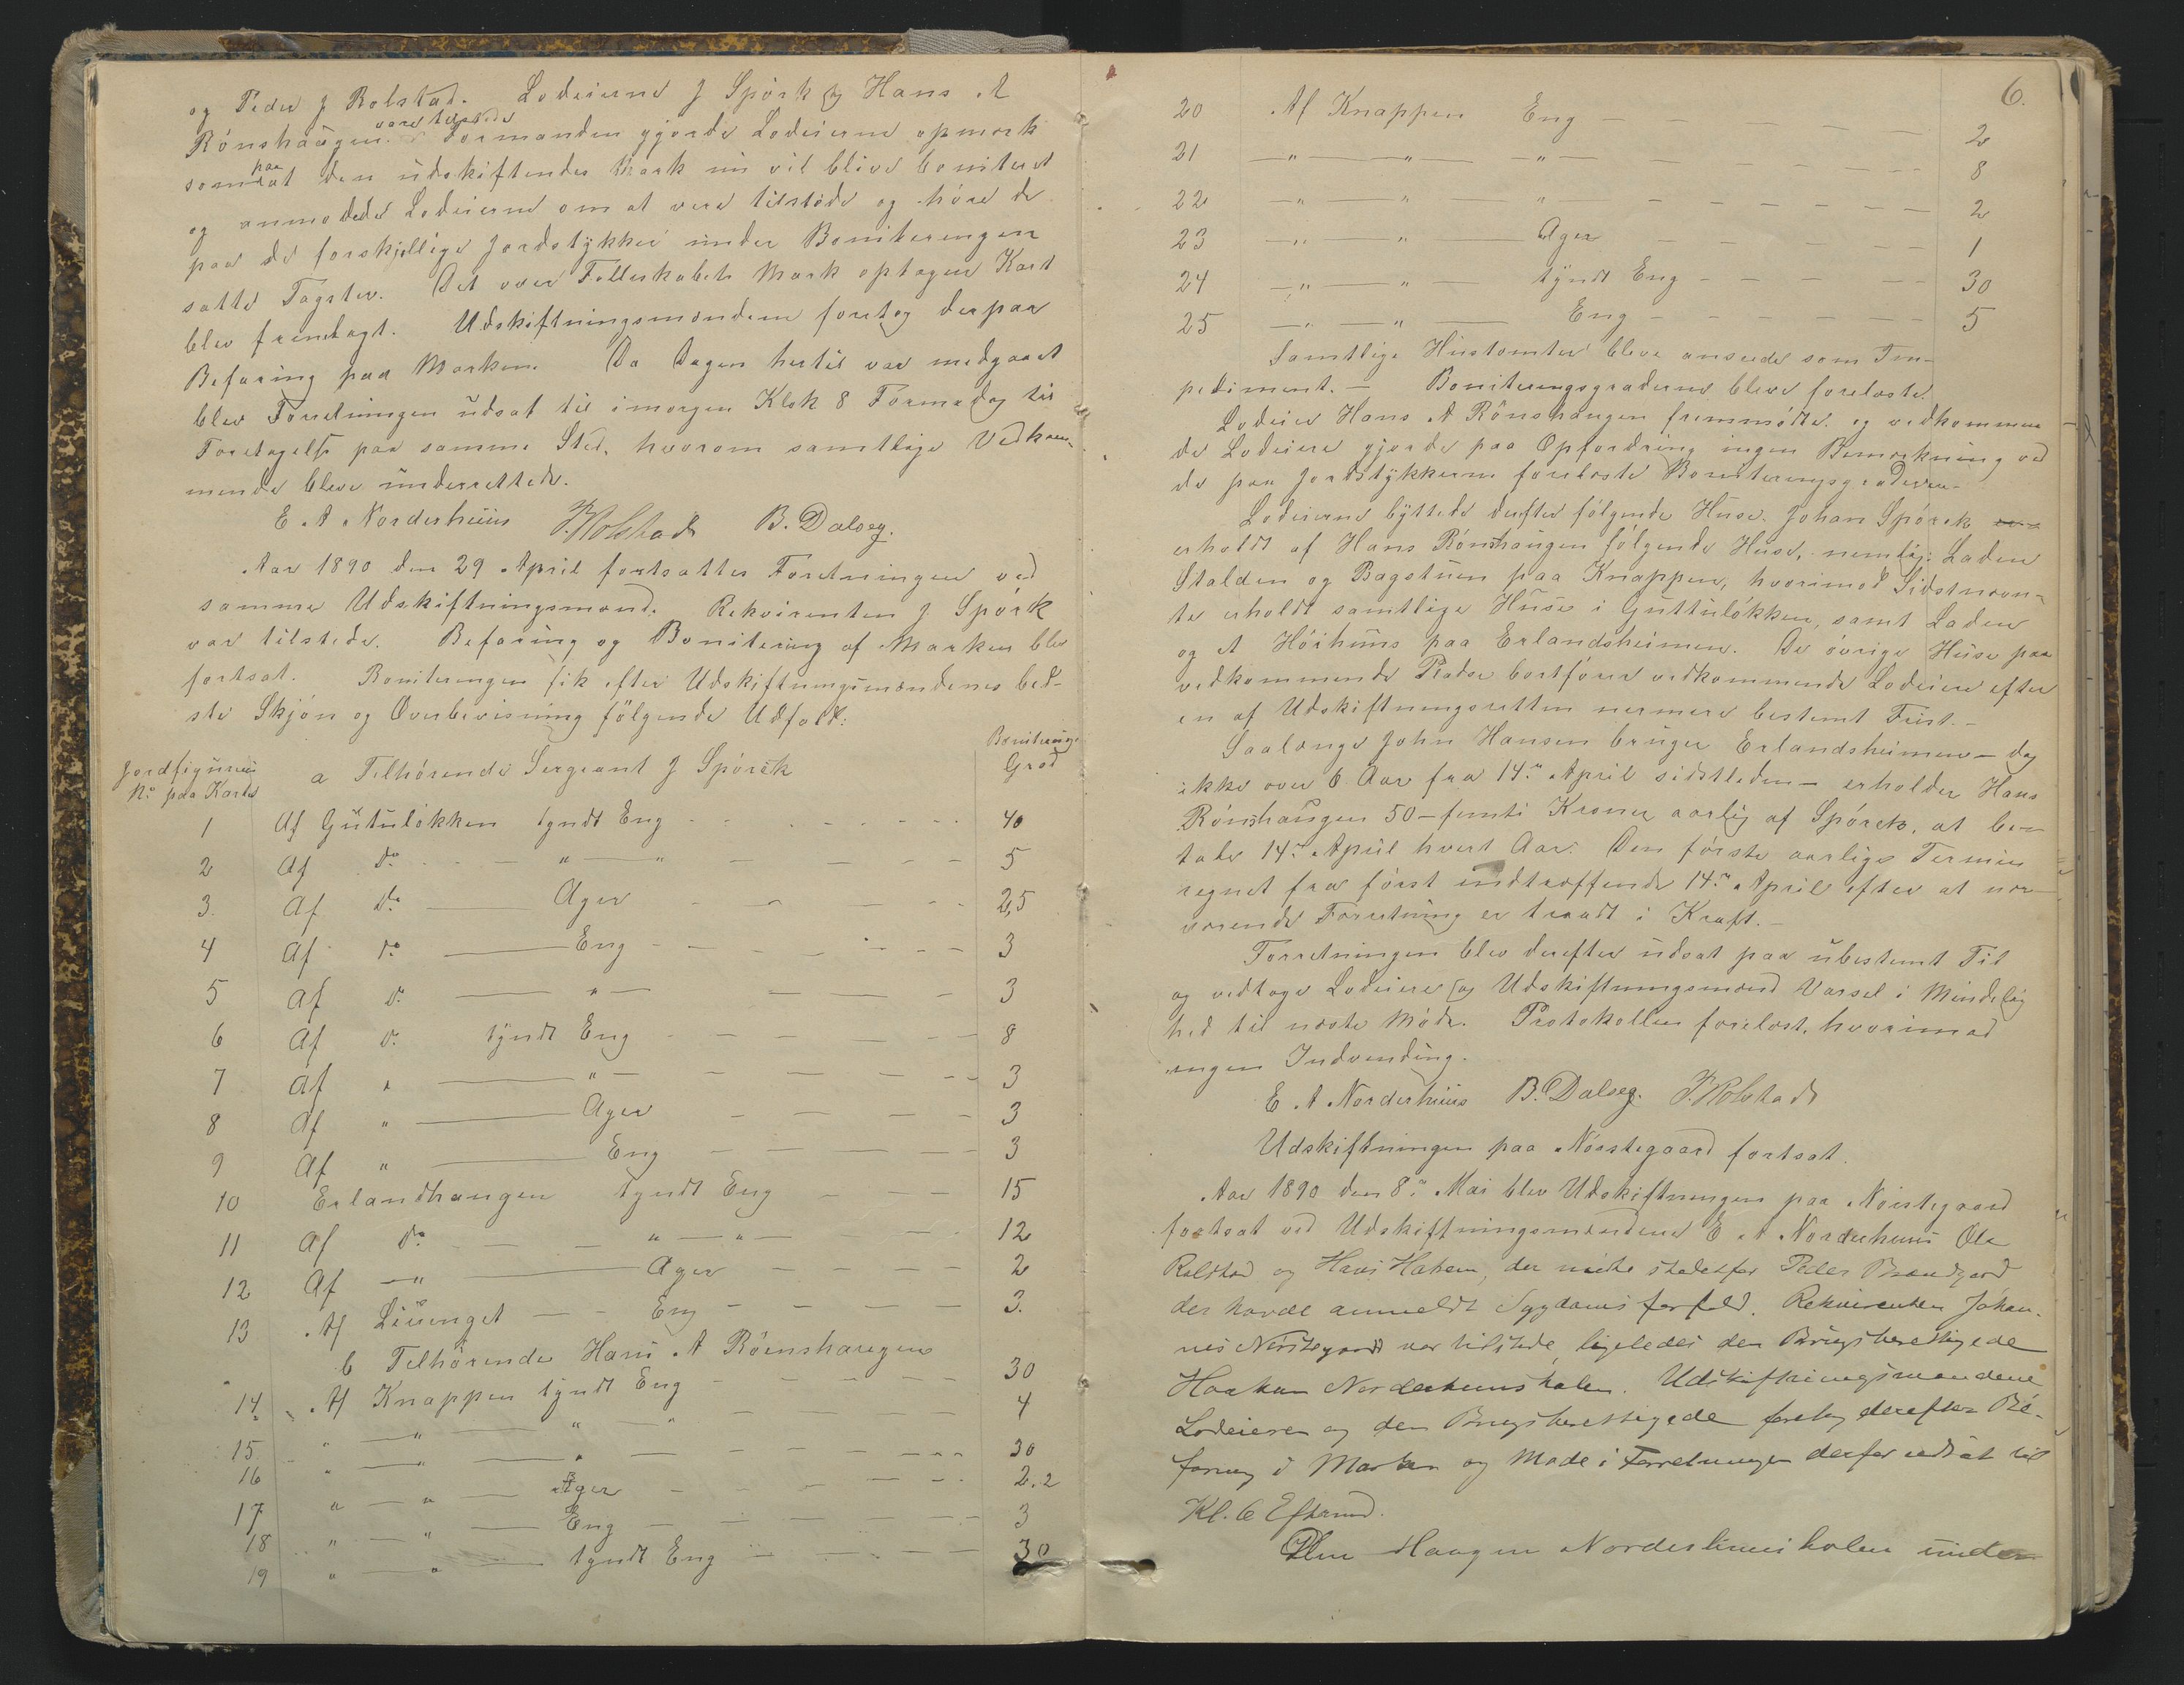 og Peder J Bolstad. Lodeierne J Spørk og Hans A
Rönshaugen vare tilstede Formanden gjorde Lodeierne opmerk
som paa at den udskiftendes Mark nu vil blive boniteret
og anmodede Lodeierne om at vere tilstede og höre de
paa de forskjellige Jordstykker under Boniteringen
satte Taxter. Det over Felleskabets Mark optagne Kart
blev fremlagt. Udskiftningsmændene foretog derpaa
Befaring paa Marken. Da Dagen hertil var medgaaet
blev Forretningen udsat til imorgen Klok 8 Formidag til
Foretagelse paa samme Sted, hvorom samtlige Vedkom-
mende bleve underrettede.
E. A. Norderhuus JRolstad B. Dalseg.
Aar 1890 den 29 April fortsattes Foretningen ved
samme Udskiftningsmænd. Rekvirenten J Spörk
var tilstede. Befaring og Bonitering af Marken blev
fortsat. Boniteringen fik efter Udskiftningsmændenes bed-
ste Skjön og Overbevisning fölgende Udfald:
Jordfigurens No paa Kartet
a Tilhörende Sergeant J Spörck
Boniterings Grad
1 Af Gutulökken tyndt Eng - - - - 40
2 Af do - " - " - - - 5
3. Af do — Ager - - - 2,5
4 Af do — Eng - - - 3
5 Af do — " — - - 3
6 Af do tyndt Eng - - - 8
7 Af " — " - - - 3
8 Af " — Ager - - - 3
9 Af " — Eng - - - 3
10 Erlandhaugen tyndt Eng - - - 15
11 Af do - - " — " - - 12
12 Af — " — Ager - - - 2
13 Af Liuenget - - Eng - - - 3.
b Tilhörende Hans A Röenshaugen
14. Af Knappen tyndt Eng - - - 30
15 " — " — " — " - - - 4
16 " — " — " — - - - 30
17 " — " — Ager - - - 2,2
18 " — " — Eng - - - 3
19 " — " — tyndt Eng - - - 30
6.
20 Af Knappen Eng - - - - 2
21 — " — " — " — - - - 8
22 — " — " — " — - - - 2
23 — " — " — Ager - - - 1
24 — " — " — tyndt Eng - - - 30
25 — " — " — Eng - - - 5
Samtlige Hustomter bleve ansede som Im-
pediment. - Boniteringsgraderne bleve foreleste.
Lodeier Hans A Rönshaugen fremmödte og vedkommen
de Lodeiere gjorde paa Opfordring ingen Bemerkning ved
de paa Jordstykkerne foreleste Boniteringsgraderne-
Lodeierne byttede derefter fölgende Huse. Johan Spörck
erholdt af Hans Rönshaugen fölgende Huse, nemlig: Laden
Stalden og Bagstuen paa Knappen, hvorimod Sidstnevn-
te erholdt samtlige Huse i Guttulökken, samt Laden
og et Höihuus paa Erlandsheimen. De övrige Huse paa
vedkommende Pladse bortförer vedkommende Lodeiere efter
en af Udskiftningsretten nermere bestemt Frist.-
Saalænge John Hansen bruger Erlandsheimen - dog
ikke over 6 Aar fra 14de April sidstleden - erholder Hans
Rönshaugen 50 - femti Kroner aarlig af Spörck, at be-
tale 14de April hvert Aar. Den förste aarlige Termin
regnet fra först indtreffende 14de April efter at ner-
verende Forretning er traadt i Kraft.-
Forretningen blev derefter udsat paa ubestemt Tid
og vedtoge Lodeiere og Udskiftningsmænd Varsel i Mindelig
hed til neste Möde. Protokollen forelest, hvorimod
ingen Indvending.
E. A Norderhuus B. Dalseg. JRolstad
Udskiftningen paa Nörstegaard fortsat.
Aar 1890 den 8de Mai blev Udskiftningen paa Nörstegaard
fortsat ved Udskiftningsmændene E A Norderhuus Ole
Rolstad og Hans Hakem, der mödte stedetfor Peder Brandgard
der havde anmeldt Sygdomsforfald. Rekvirenten Johan-
nes Nörstegaard var tilstede, ligeledes den Brugsberettigede
Haakon Norderhuusholen. Udskiftningsmændene
Lodeieren og den Brugsberettigede foretog derefter Be-
faring i Marken og Möde i Forretningen derfor udsat til
Kl. 6 Efterm.
Haagen Norderhuusholen under